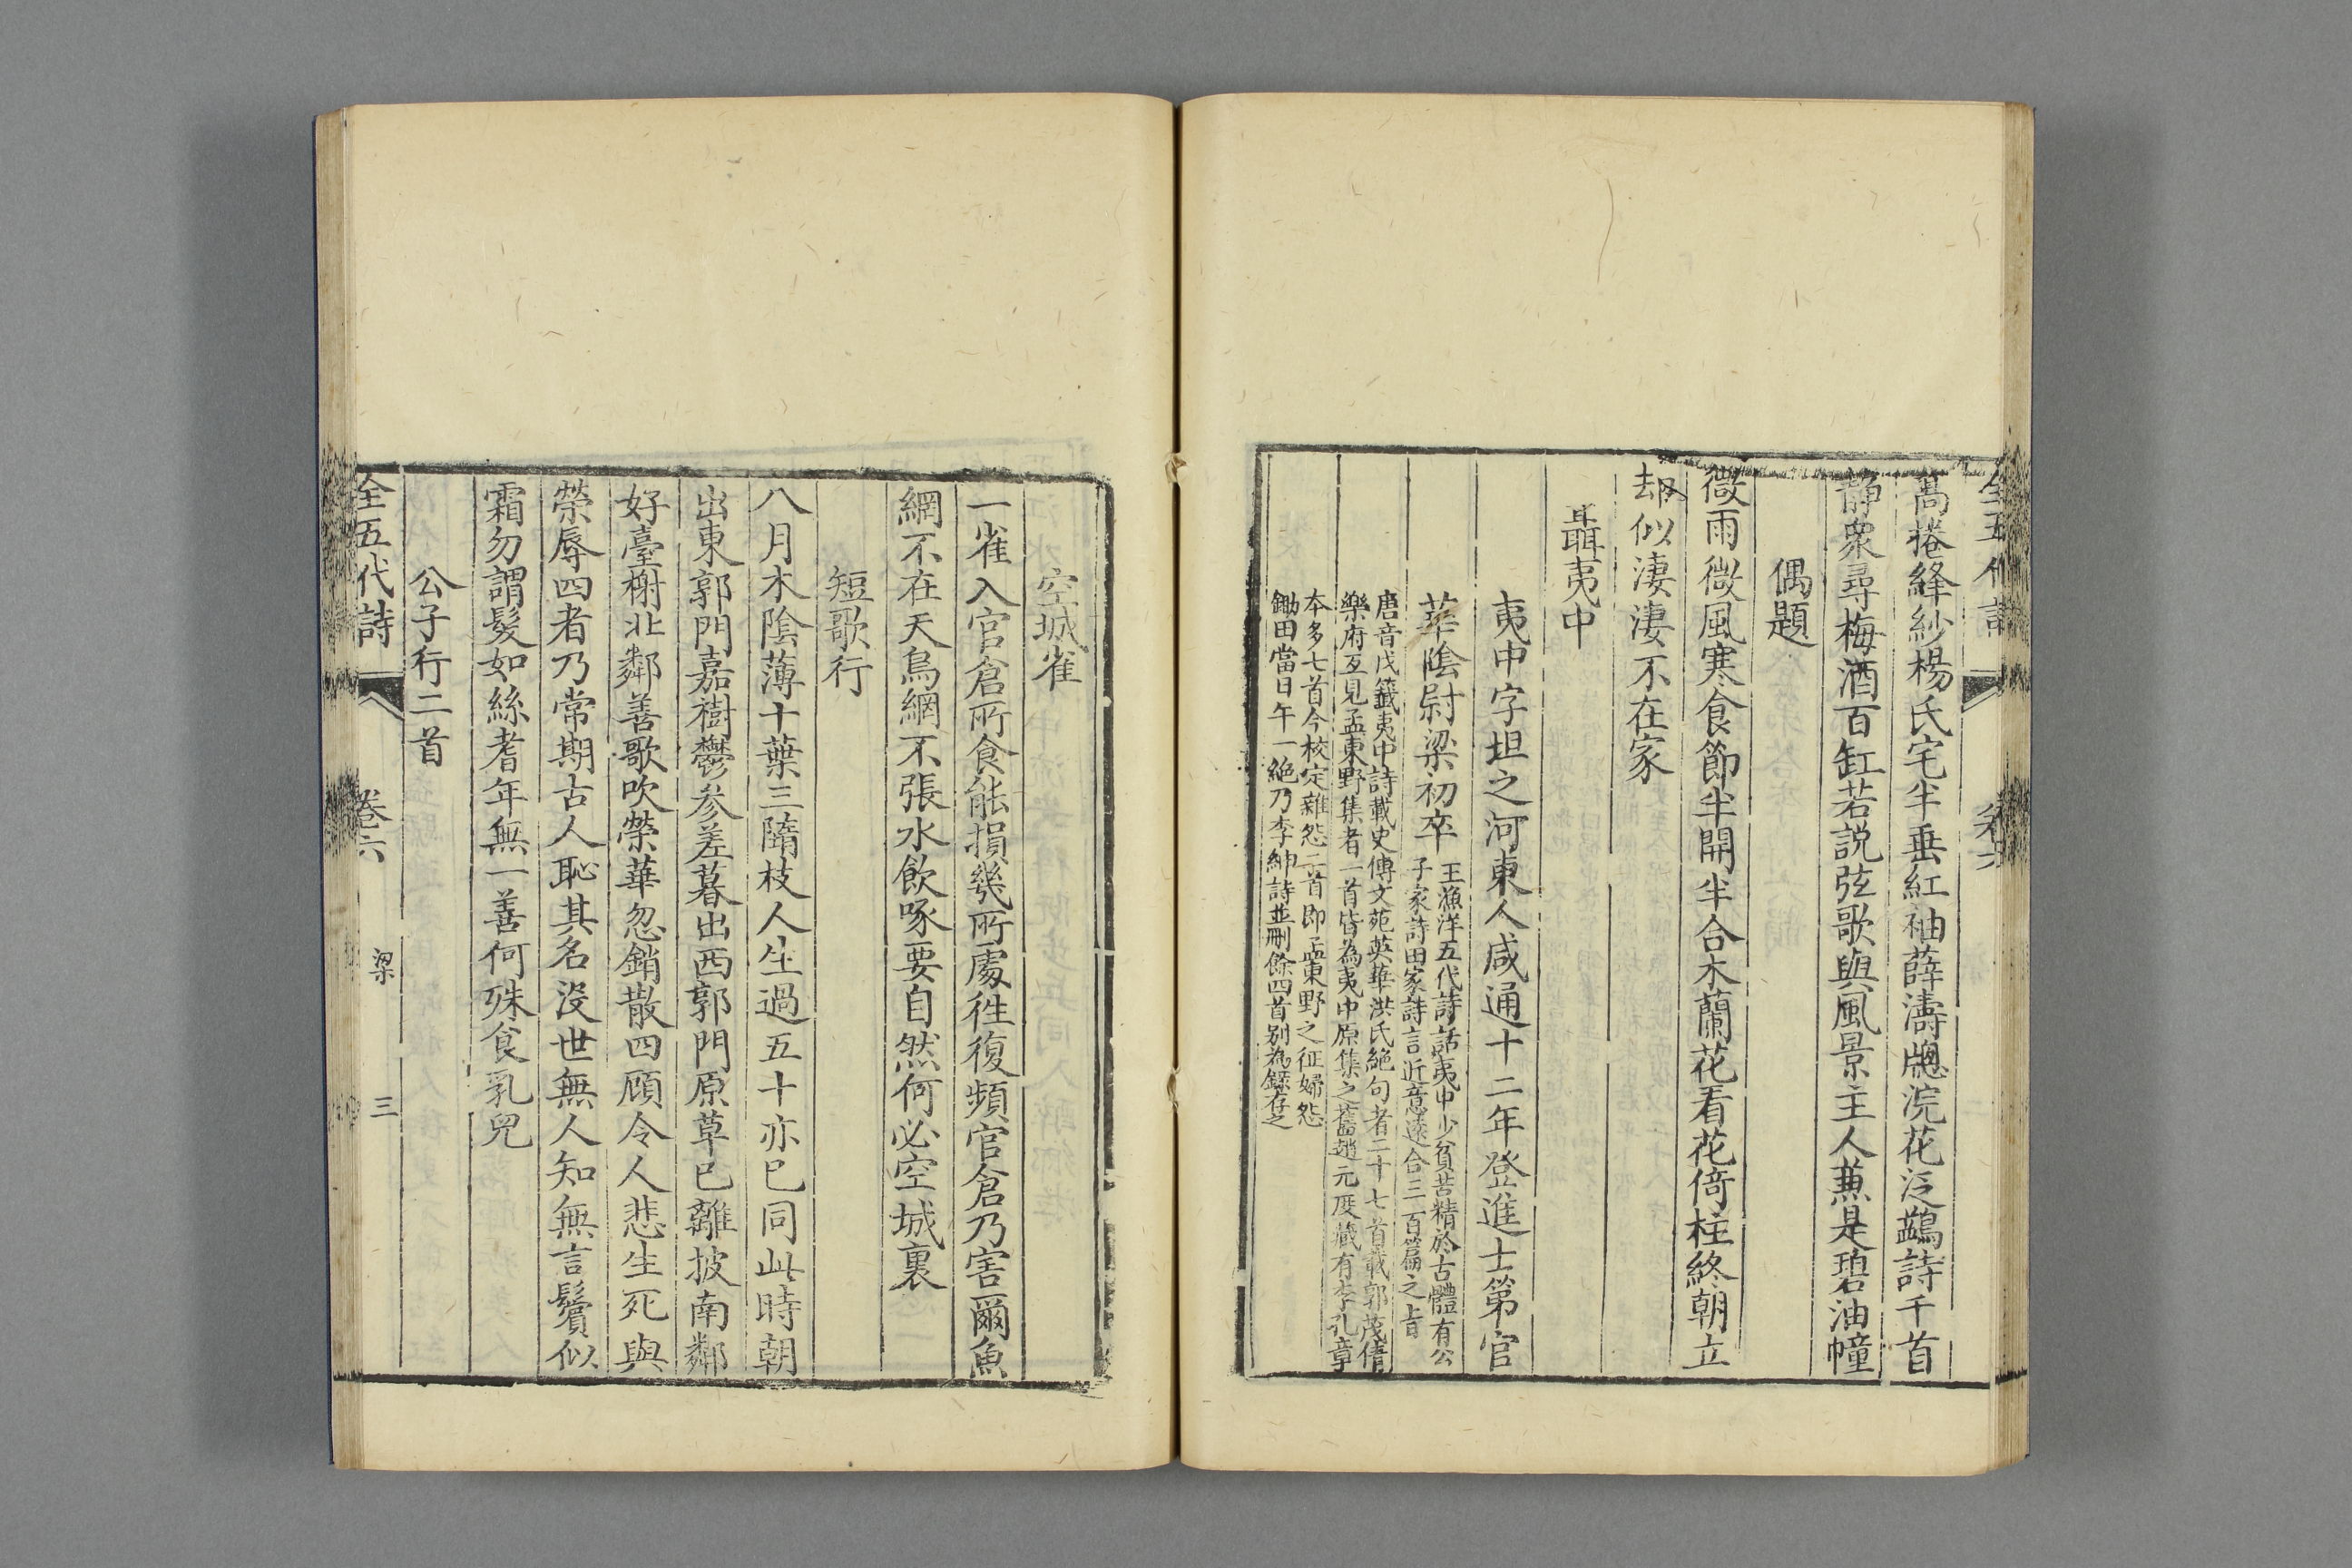 全五代詩 卷六
高捲絳紗楊氏宅半垂紅袖薛濤牕浣花泛鷁詩千首
靜衆尋梅酒百缸若説弦歌與風景主人蒹是碧油幢
偶題
微雨微風寒食節半開半合木蘭花看花倚柱終朝立
却似淒淒不在家
聶夷中
夷中字坦之河東人咸通十二年登進士第官
華陰尉梁初卒
王漁洋五代詩話夷中少貧苦精於古體有公
子家詩田家詩言近意遠合三百篇之旨
唐音戊籤夷中詩載史傳文苑英華洪氏絶句者二十七首載郭茂倩
樂府互見孟東野集者一首皆為夷中原集之舊趙元度藏有李孔章
本多七首今校定雜怨二首即孟東野之征婦怨
鋤田當日午一絶乃李紳詩並刪餘四首别為錄存之
空城雀
一雀入官倉所食能損幾所處徃復頻官倉乃害爾魚
網不在天鳥網不張水飲啄要自然何必空城裏
短歌行
八月木陰薄十葉三隋枝人生過五十亦已同此時朝
出東郭門嘉樹鬱參差暮出西郭門原草已離披南鄰
好臺榭北鄰善歌吹榮華忽銷散四顧令人悲生死與
榮辱四者乃常期古人恥其名沒世無人知無言鬢似
霜勿謂髮如絲耆年無一善何殊食乳兒
公子行二首
全五代詩 卷六 梁 三